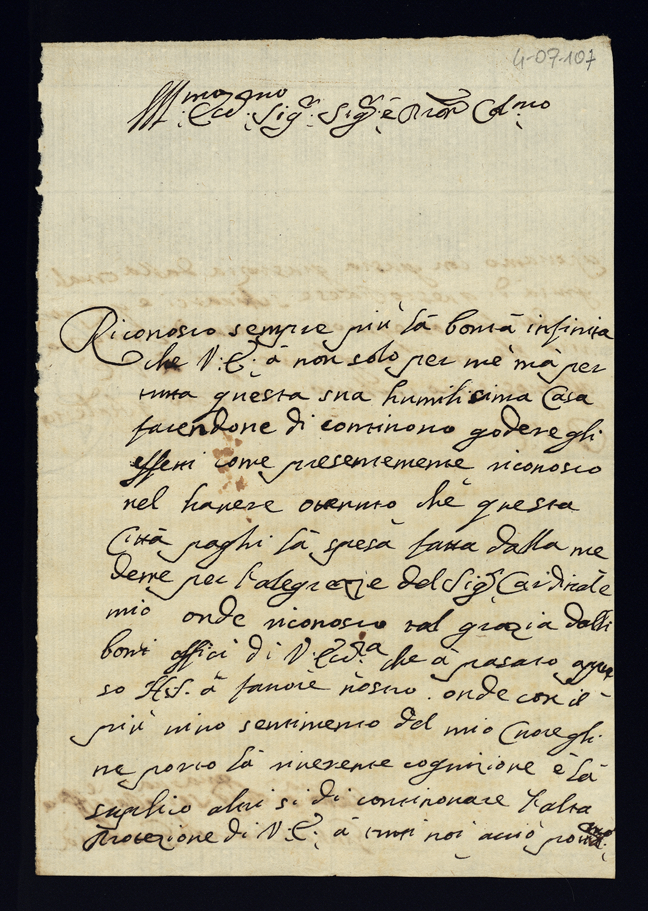 4-07-107
Ill.mo Ecc.mo Sig.r Sig.r è Pron Col.mo
Riconosco sempre più là bontà infinita
che V: E: à non solo per mè mà per
tutta questa sua humilisima Casa
facendone di continouo godere gli
effetti come presentemente riconosco
nel hauere otenuto chè questa
Città paghi là spesa fatta dalla me
deme per l'alegrezie del Sig.r Cardinale
mio onde riconosco tal grazia dalli
boni offici di V: Ecc.za che à pasato apres
so à fauore nostro. onde con il
più uiuo sentimento del mio Cuore gli
ne porto là riuerente cognizione è là
suplico altresi di continouare l'alta
Protezione di V: E: à tutti noi acciò